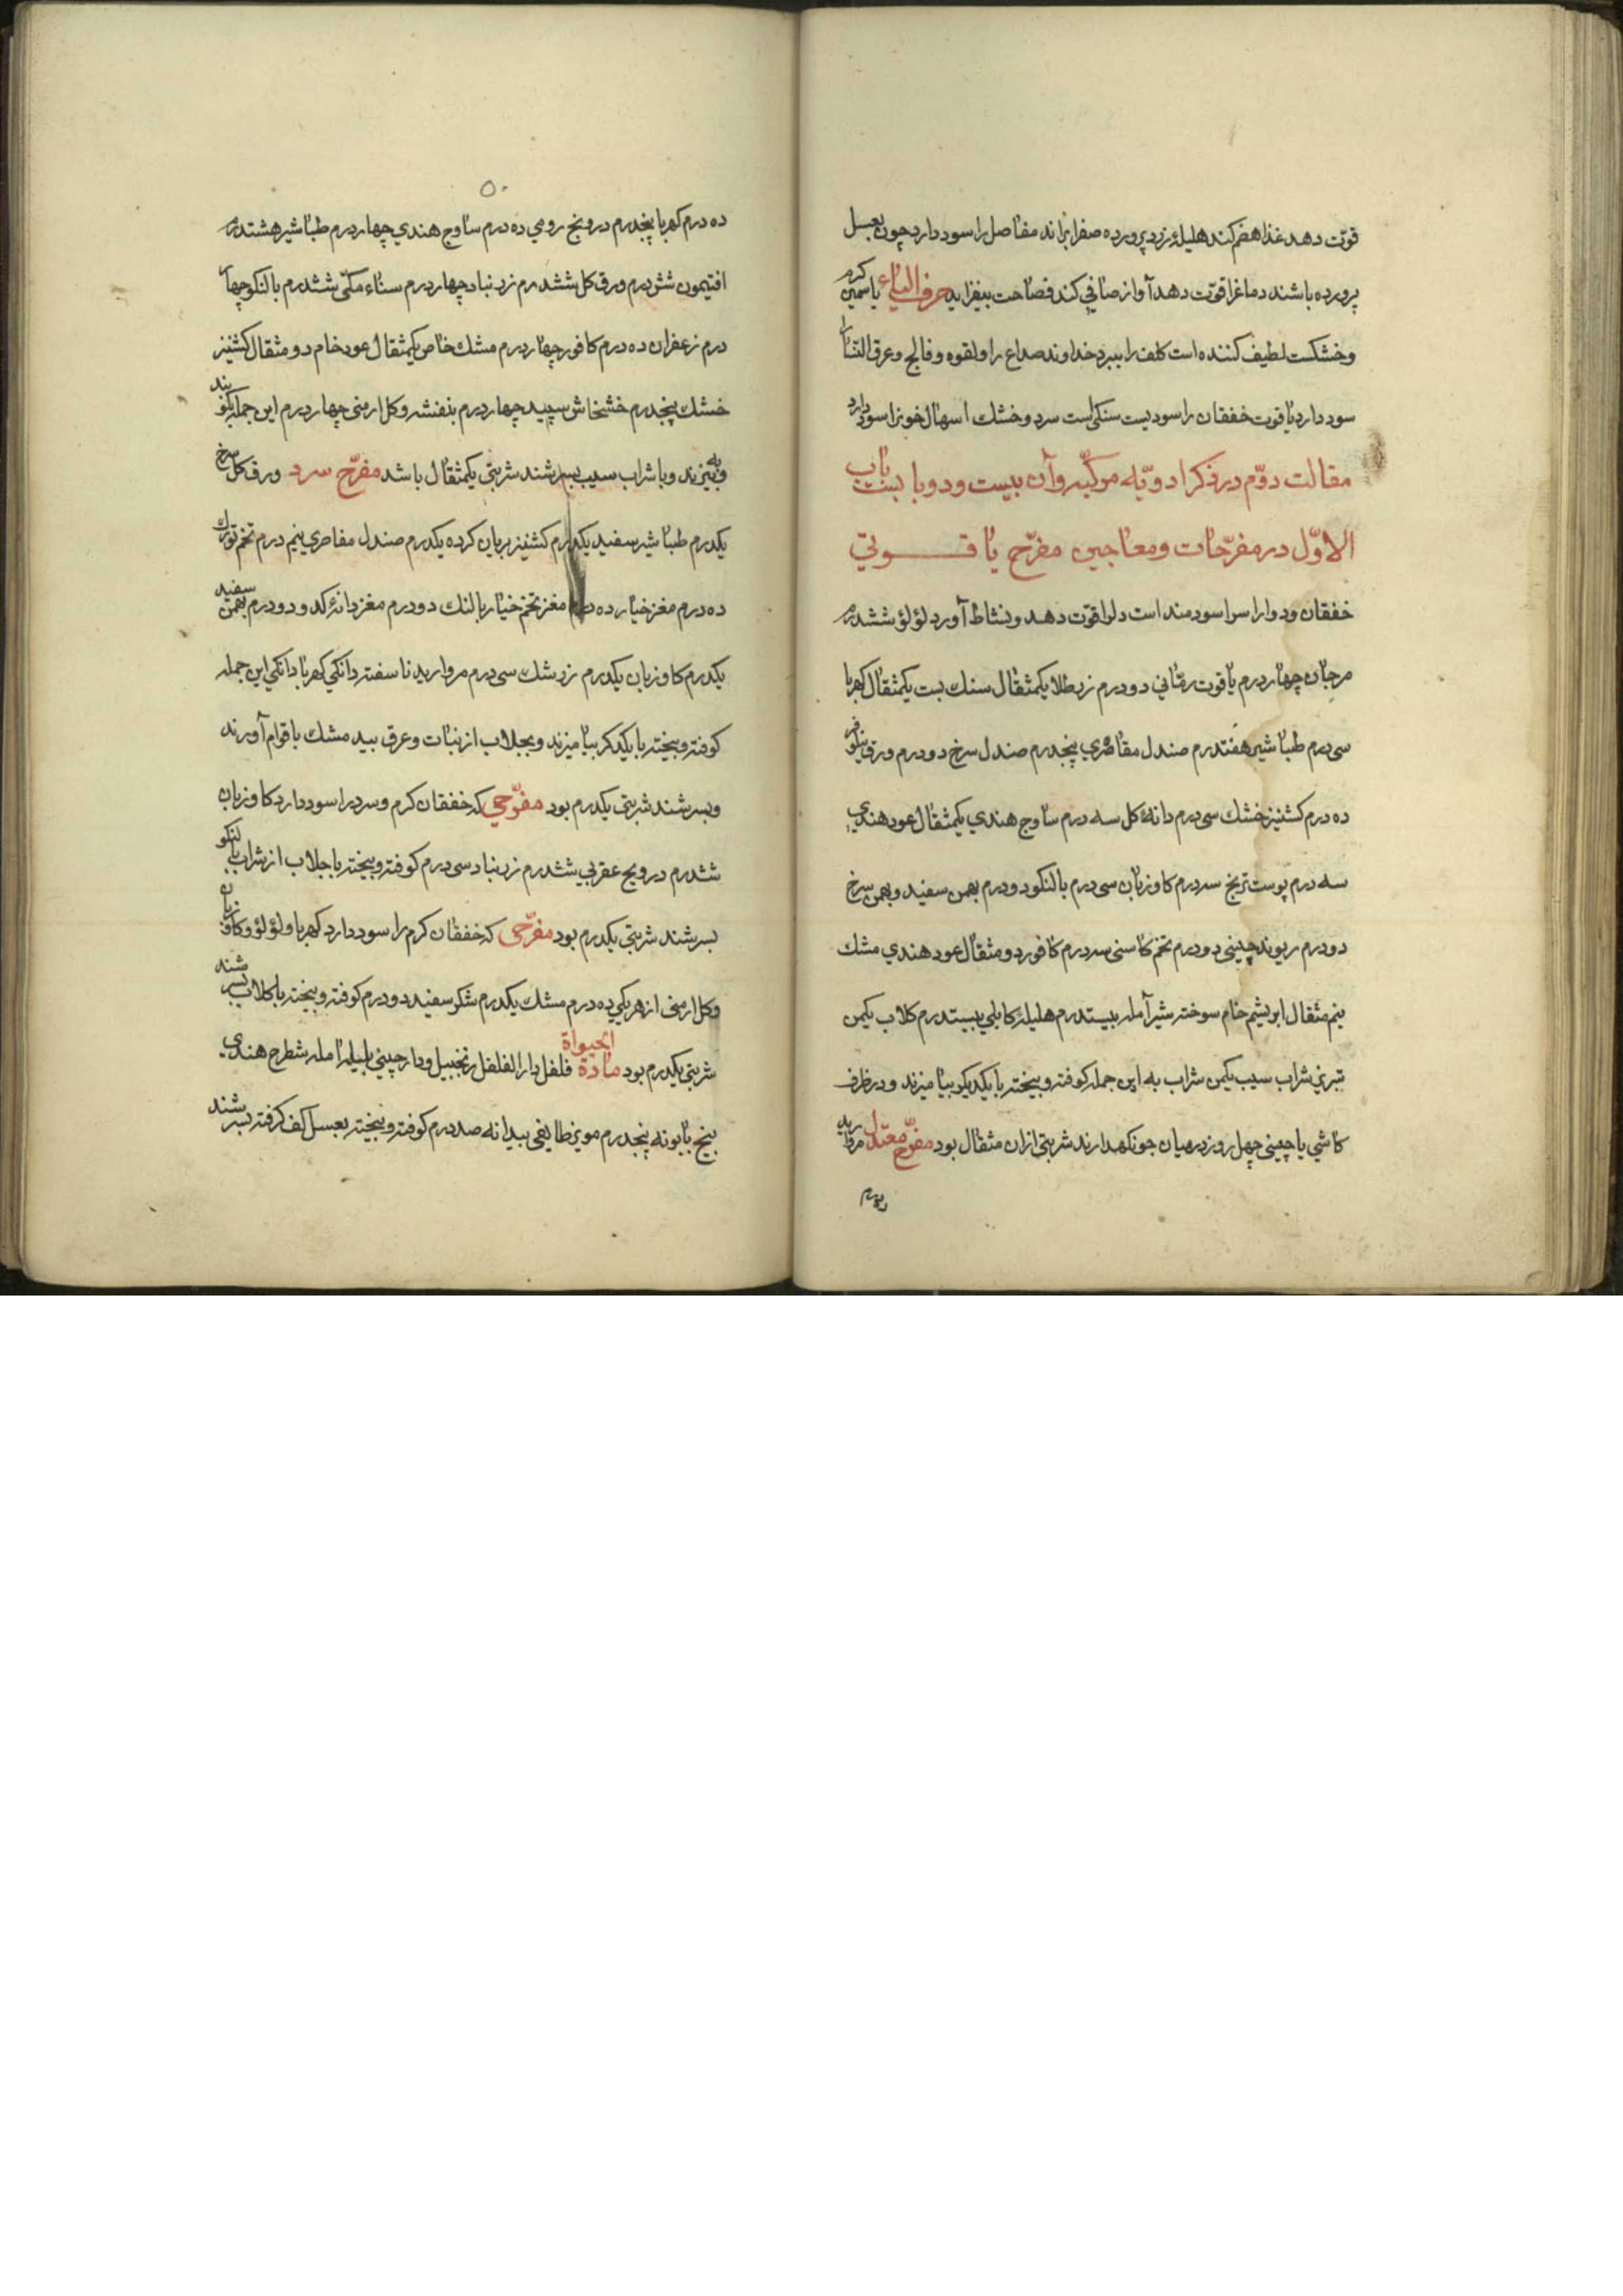 قوّت دهد غذا هضم کند هلیلۀ زرد پرورده صفرا براند مفاصل را سود دارد چون بعسل
پرورده باشند دماغرا قوّت دهد آواز صافی کند فصاحت بیفزاید حرف الیاء یاسمین کرم
و خشکست لطیف کننده است کلف را ببرد خداوند صداع را و لقوه و فالج و عرق النسا را
سود دارد یاقوت خفقان را سود یست سنکی است سرد و خشک اسهال خونرا سود دارد
مقالت دوّم در ذکر ادویّه موکبّه و آن بیست و دو با بست باب
الاوّل در مفرّحات و معاجین مفرّح یاقوتی
خفقان و دوار را سودمند است دلرا قوّت دهد و نشاط آورد لؤلؤ ششدرم
مرجان چهار درم یاقوت رمّانی دو درم زر طلا یکمثقال سنک یست یکمثقال کهربا
سی درم طباشیر هفتدرم صندل مقاصری پنجدرم صندل سرخ دو درم ورق نیلوفر
ده درم کشنیز خشک سی درم دانۀ کل سه درم ساوج هندی یکمثقال عود هندی
سه درم پوست ترنج سه درم کاوزبان سی درم بالنکو دو درم بهمن سفید و بهمن سرخ
دو درم ریوند چینی دو درم تخم کاسنی سه درم کافور دو مثقال عود هندی مشک
نیم مثقال ابریشم خام سوخته شیر آمله بیستدرم هلیلۀ کابلی بیستدرم کلاب یکمن
تبریزی شراب سیب یکمن شراب به این جمله کوفته و بیخته با یکدیکر بیامیزند و در ظرف
کاشی یا چینی چهل روز در میان جو نکهدارند شربتی ازان مثقال بود مفرّح معتدل مروارید
ده درم
۵۰
ده درم کهربا پنجدرم درونج رومی ده درم ساوج هندی چهار درم طباشیر هشتدرم
افتیمون شش درم ورق کل ششدرم زرنباد چهار درم سناء مکّی ششدرم بالنکو چهار
درم زعفران ده درم کافور چهار درم مشک خاص یکمثقال عود خام دو مثقال کشنیز
خشک پنجدرم خشخاش سپید چهار درم بنفشه و کل ارمنی چهار درم این جمله بکوبند
و ببیزند و با شراب سیب بسرشند شربتی یکمثقال باشد مفرّح سرد ورق کل سرخ
یکدرم طباشیر سفید یکدرم کشنیز بریان کرده یکدرم صندل مقاصری نیم درم تخم تورک
ده درم مغز خیار ده درم مغز تخم خیار بالنک دو درم مغز دانۀ کدو دو درم بهمن سفید
یکدرم کاوزبان یکدرم زرشک سی درم مروارید ناسفته دانکی کهربا دانکی این جمله
کوفته و بیخته با یکدکر بیامیزند و بجلاب از نبات و عرق بید مشک با قوام آورند
و بسرشند شربتی یکدرم بود مفرّحی که خفقان کرم و سرد را سود دارد کاوزبان
ششدرم درونج عقربی ششدرم زرنباد سی درم کوفته و بیخته با جلاب از شراب بالنکو
بسرشند شربتی یکدرم بود مفرّحی که خفقان کرم را سود دارد کهربا و لؤلؤ و کاوزبان
و کل ارمنی از هر یکی ده درم مشک یکدرم شکر سفید دو درم کوفته و بیخته با کلاب بسرشند
شربتی یکدرم بود مادة الحیواة فلفل دار الفلفل زنجبیل و دارچینی بلیله آمله شطرح هندی
بیخ بابونه پنجدرم مویز طایفی بیدانه صد درم کوفته و بیخته بعسل کف کرفته بسرشند